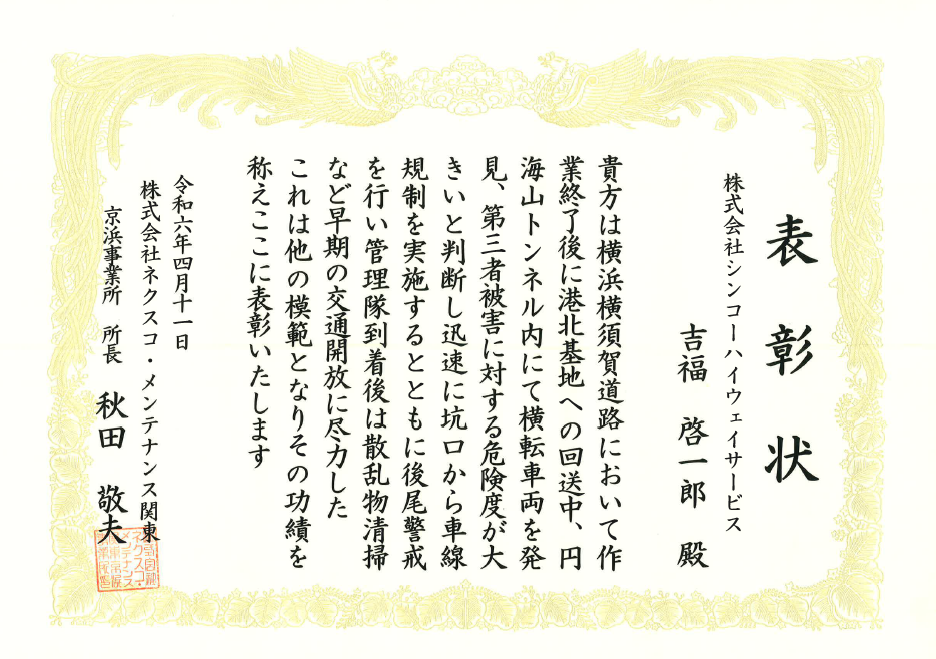 表彰状
株式会社シンコーハイウェイサービス
吉福 啓一郎 殿
貴方は横浜横須賀道路において作
業終了後に港北基地への回送中、円
海山トンネル内にて横転車両を発
見、第三者被害に対する危険度が大
きいと判断し迅速に坑口から車線
規制を実施するとともに後尾警戒
を行い管理隊到着後は散乱物清掃
など早期の交通開放に尽力した
これは他の模範となりその功績を
称えここに表彰いたします
令和六年四月十一日
株式会社ネクスコ・メンテナンス関東
京浜事業所 所長 秋田 敬夫